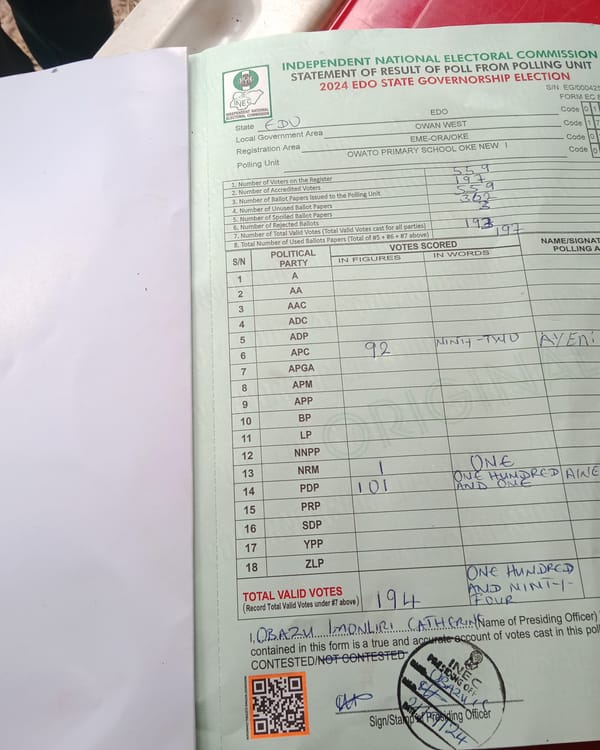 INDEPENDENT NATIONAL ELECTORAL COMMISSION
STATEMENT OF RESULT OF POLL FROM POLLING UNIT
2024 EDO STATE GOVERNORSHIP ELECTION
INEC
INDEPENDENT NATIONAL ELECTORAL COMMISSION
S/N: EG/00042
FORM EC 8
State EDO EDO Code 0 1
Local Government Area OWAN WEST Code 1
Registration Area EME-ORA/OKE Code 0
Polling Unit OWATO PRIMARY SCHOOL OKE NEW I Code 0
1. Number of Voters on the Register 559
2. Number of Accredited Voters 197
3. Number of Ballot Papers Issued to the Polling Unit 559
4. Number of Unused Ballot Papers 362
5. Number of Spoiled Ballot Papers
6. Number of Rejected Ballots 3
7. Number of Total Valid Votes (Total Valid Votes cast for all parties)
8. Total Number of Used Ballots Papers (Total of #5 + #6 + #7 above) 197
S/N POLITICAL PARTY VOTES SCORED NAME/SIGNAT
IN FIGURES IN WORDS POLLING A
1 A
2 AA
3 AAC
4 ADC
5 ADP
6 APC 92 NINTY-TWO AYENI
7 APGA
8 APM
9 APP
10 BP
11 LP
12 NNPP
13 NRM 1 ONE
14 PDP 101 ONE HUNDRED AND ONE
15 PRP
16 SDP
17 YPP
18 ZLP
ORIGINAL
TOTAL VALID VOTES 194 ONE HUNDRED AND NINTY-FOUR
(Record Total Valid Votes under #7 above)
I, OBAZU IMONLIRI CATHERINE Name of Presiding Officer)
contained in this form is a true and accurate account of votes cast in this poll
CONTESTED/NOT CONTESTED
INEC
Sign/Stamp of Presiding Officer